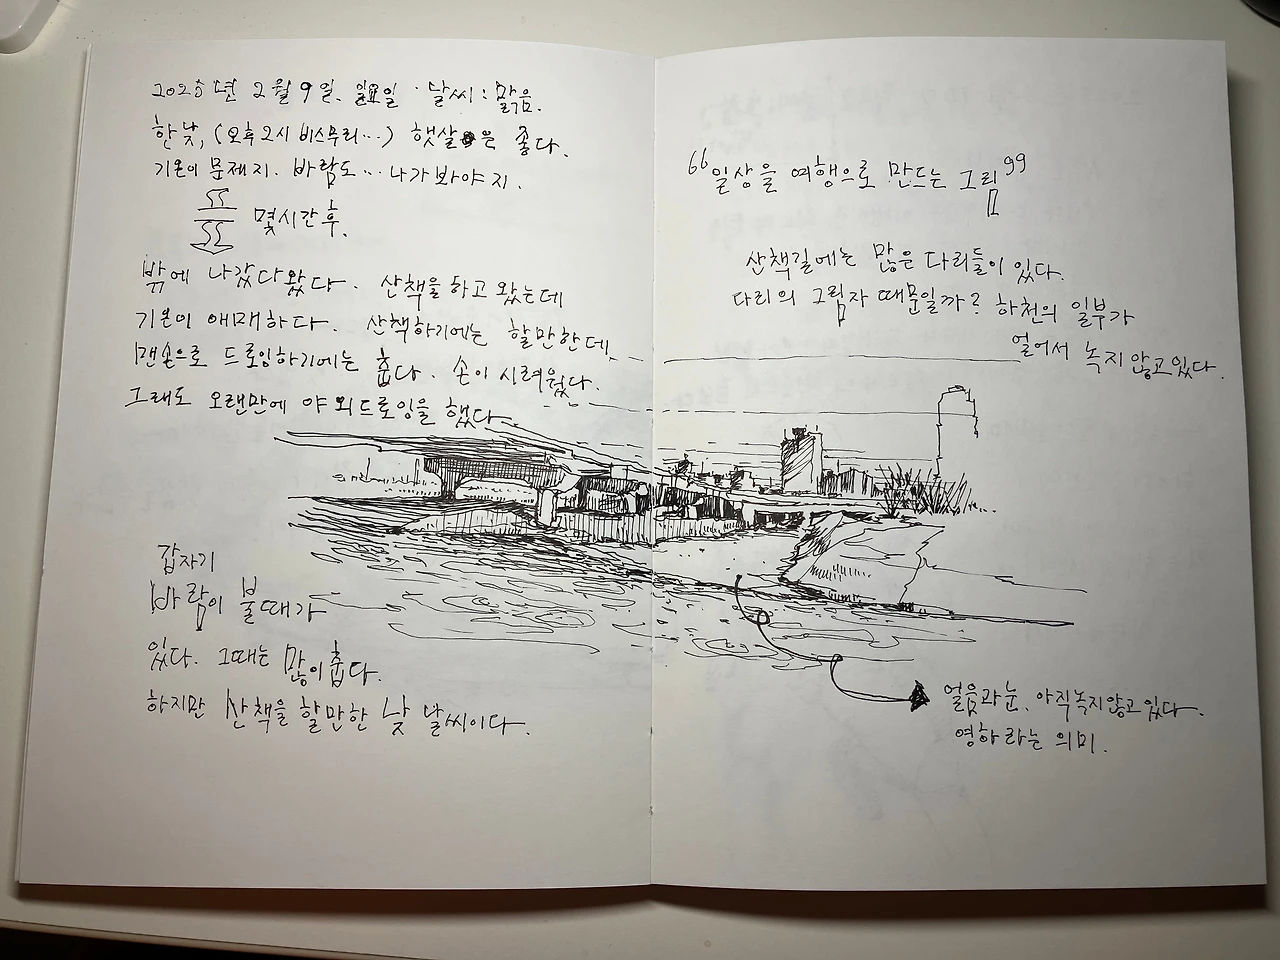 2025년 2월 9일. 일요일 · 날씨 : 맑음.
한낮, (오후2시 비스무리...) 햇살은 좋다.
기온이 문제지. 바람도... 나가봐야지.
몇시간후.
밖에 나갔다왔다. 산책을하고 왔는데
기온이 애매하다. 산책하기에는 할만한데,
맨손으로 드로잉하기에는 춥다. 손이 시려웠다.
그래도 오랜만에 야외드로잉을 했다.
갑자기
바람이 불때가
있다. 그때는 많이춥다.
하지만 산책을 할만한 낮 날씨이다.
“일상을 여행으로 만드는 그림”
산책길에는 많은 다리들이 있다.
다리의 그림자 때문일까? 하천의 일부가
얼어서 녹지않고있다.
얼음과눈, 아직녹지않고있다.
영하라는 의미.